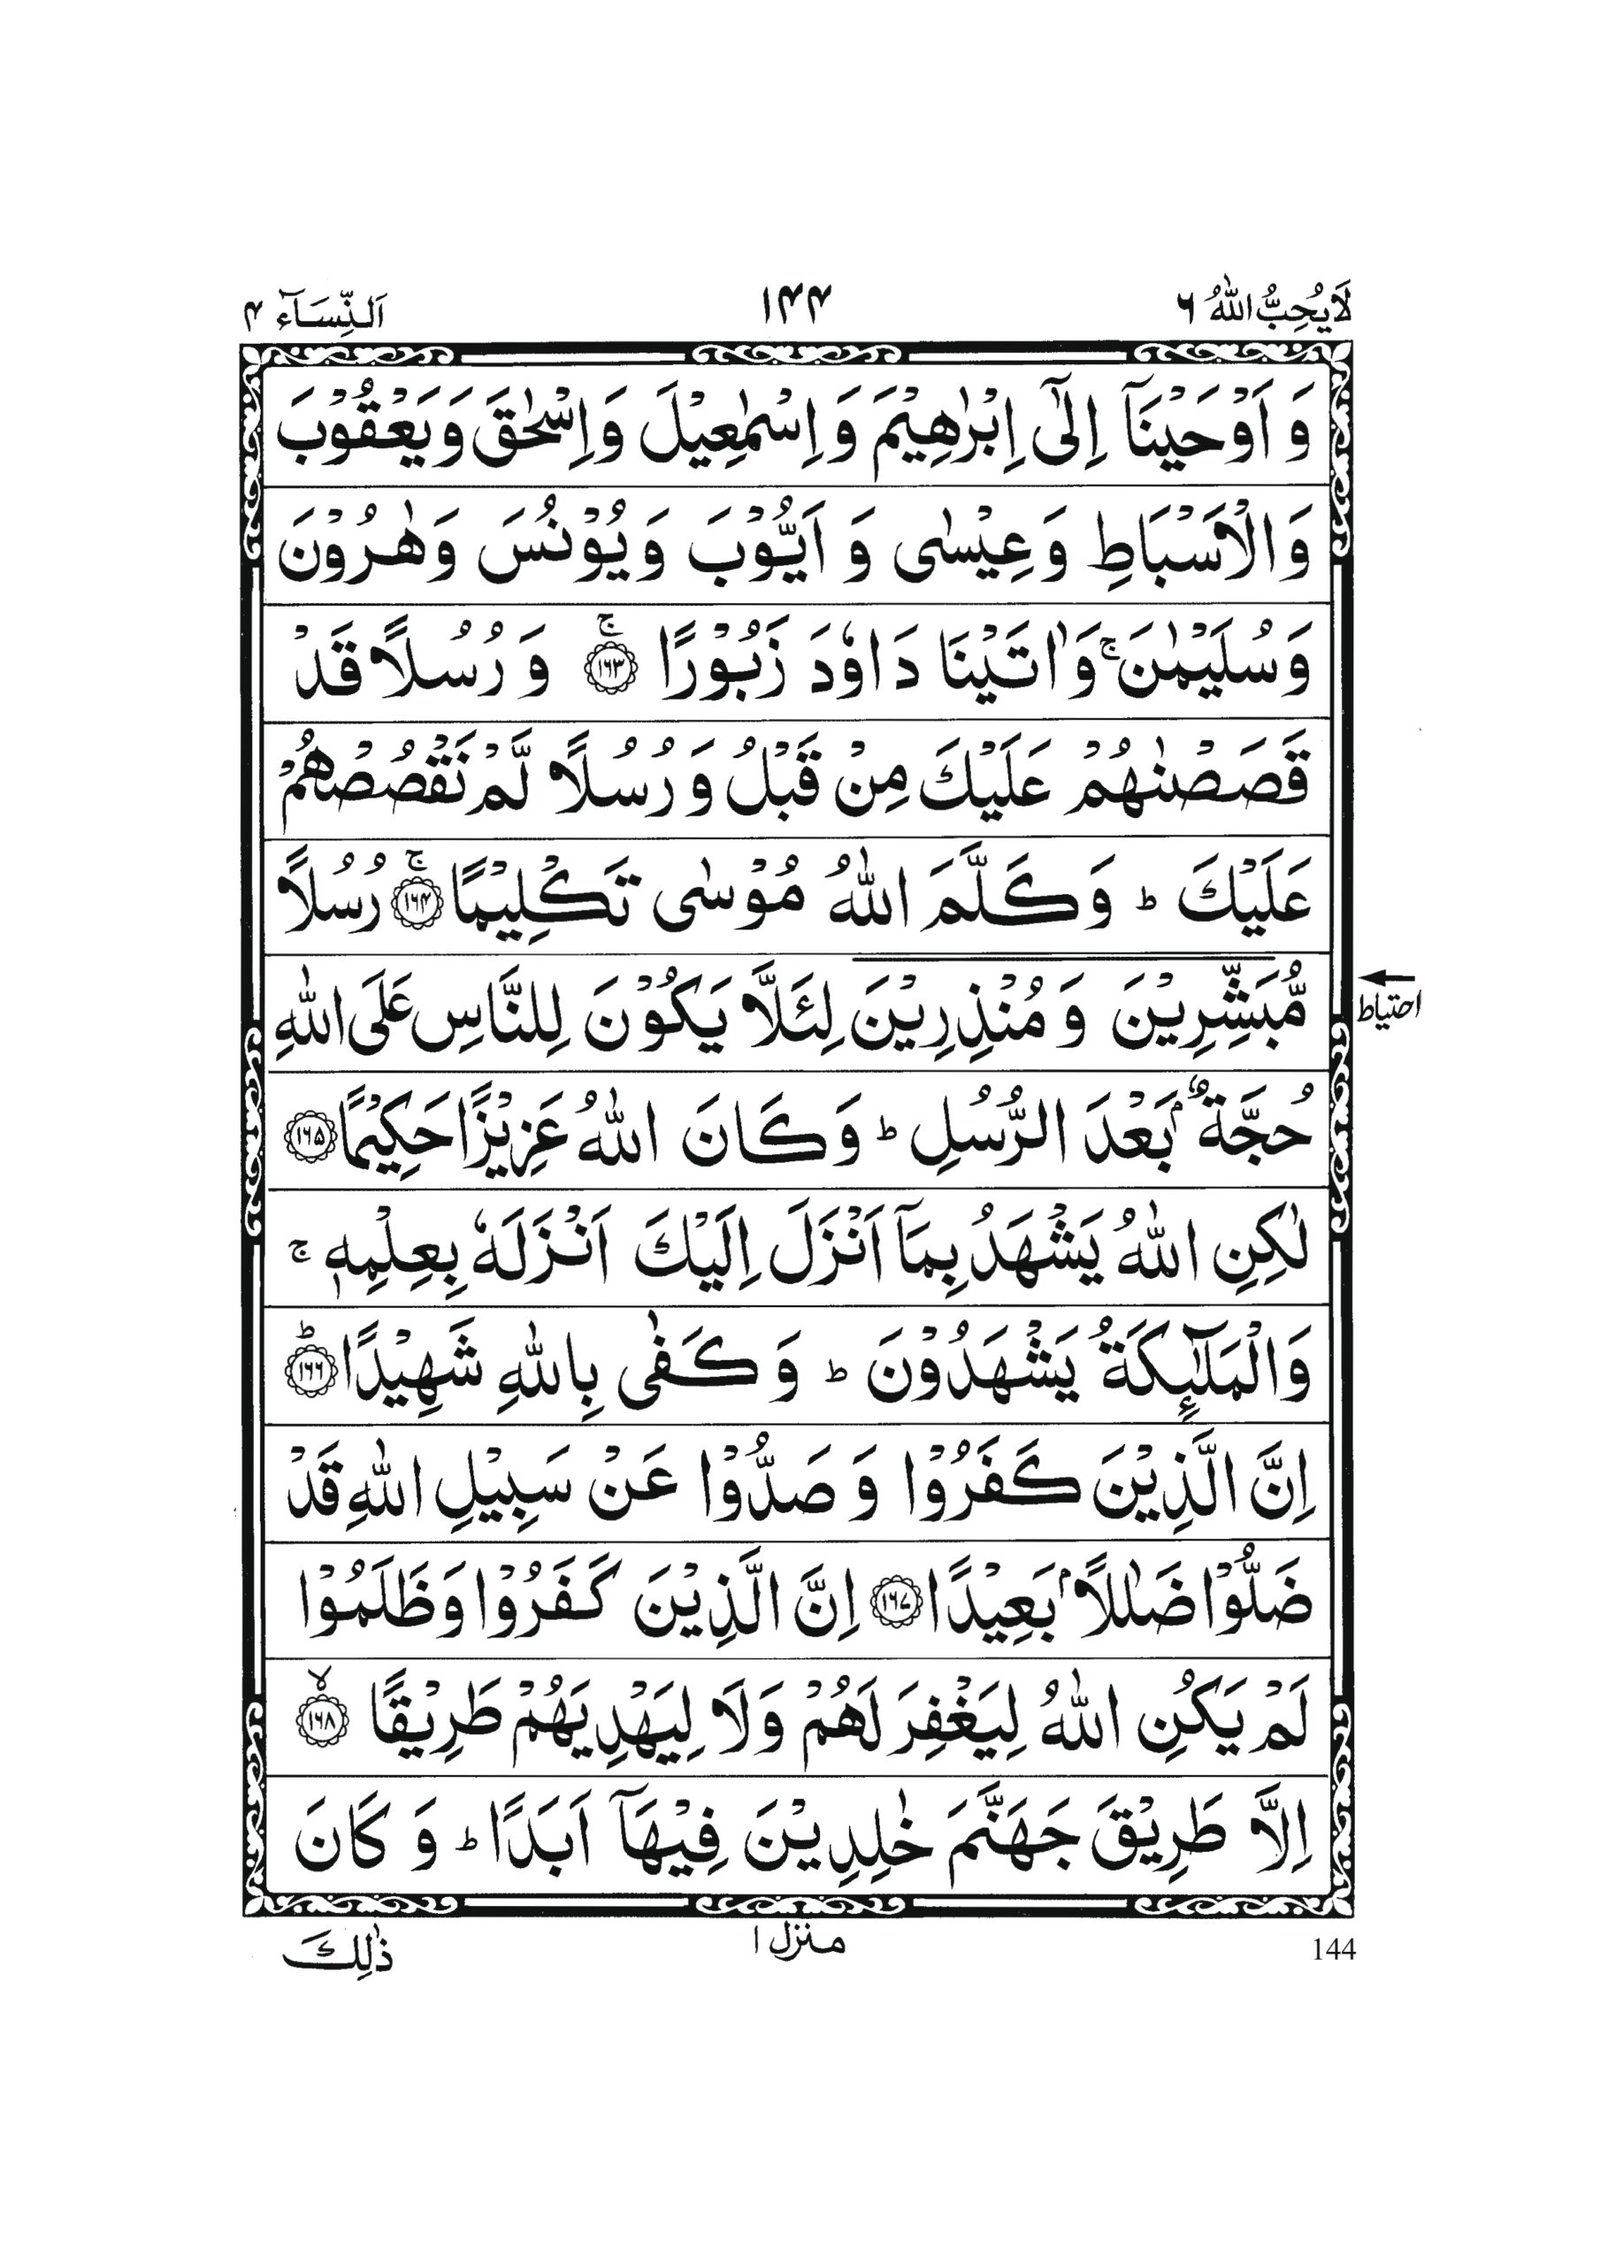 لَا يُحِبُّ اللّٰهُ ٦ ۱۴۴ اَلنِّسَآء ۴
وَ اَوْحَيْنَآ اِلٰٓى اِبْرٰهِيْمَ وَ اِسْمٰعِيْلَ وَ اِسْحٰقَ وَ يَعْقُوْبَ
وَالْاَسْبَاطِ وَ عِيْسٰى وَ اَيُّوْبَ وَ يُوْنُسَ وَ هٰرُوْنَ
وَ سُلَيْمٰنَ ۚ وَ اٰتَيْنَا دَاوٗدَ زَبُوْرًا ۚ ﴿۱۶۳﴾ وَ رُسُلًا قَدْ
قَصَصْنٰهُمْ عَلَيْكَ مِنْ قَبْلُ وَ رُسُلًا لَّمْ نَقْصُصْهُمْ
عَلَيْكَ ؕ وَ كَلَّمَ اللّٰهُ مُوْسٰى تَكْلِيْمًا ۚ ﴿۱۶۴﴾ رُسُلًا
مُّبَشِّرِيْنَ وَ مُنْذِرِيْنَ لِئَلَّا يَكُوْنَ لِلنَّاسِ عَلَى اللّٰهِ
احتیاط
حُجَّةٌۢ بَعْدَ الرُّسُلِ ؕ وَ كَانَ اللّٰهُ عَزِيْزًا حَكِيْمًا ﴿۱۶۵﴾
لٰكِنِ اللّٰهُ يَشْهَدُ بِمَآ اَنْزَلَ اِلَيْكَ اَنْزَلَهٗ بِعِلْمِهٖ ۚ
وَالْمَلٰٓئِكَةُ يَشْهَدُوْنَ ؕ وَ كَفٰى بِاللّٰهِ شَهِيْدًا ؕ ﴿۱۶۶﴾
اِنَّ الَّذِيْنَ كَفَرُوْا وَ صَدُّوْا عَنْ سَبِيْلِ اللّٰهِ قَدْ
ضَلُّوْا ضَلٰلًاۢ بَعِيْدًا ﴿۱۶۷﴾ اِنَّ الَّذِيْنَ كَفَرُوْا وَ ظَلَمُوْا
لَمْ يَكُنِ اللّٰهُ لِيَغْفِرَ لَهُمْ وَلَا لِيَهْدِيَهُمْ طَرِيْقًا ۙ ﴿۱۶۸﴾
اِلَّا طَرِيْقَ جَهَنَّمَ خٰلِدِيْنَ فِيْهَآ اَبَدًا ؕ وَ كَانَ
144 منزل ۱ ذٰلِكَ